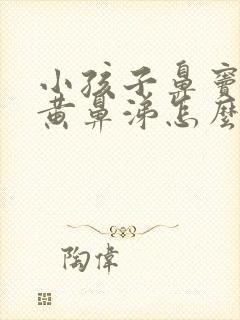 小孩子鼻窦
黄鼻涕怎麼
陶偉